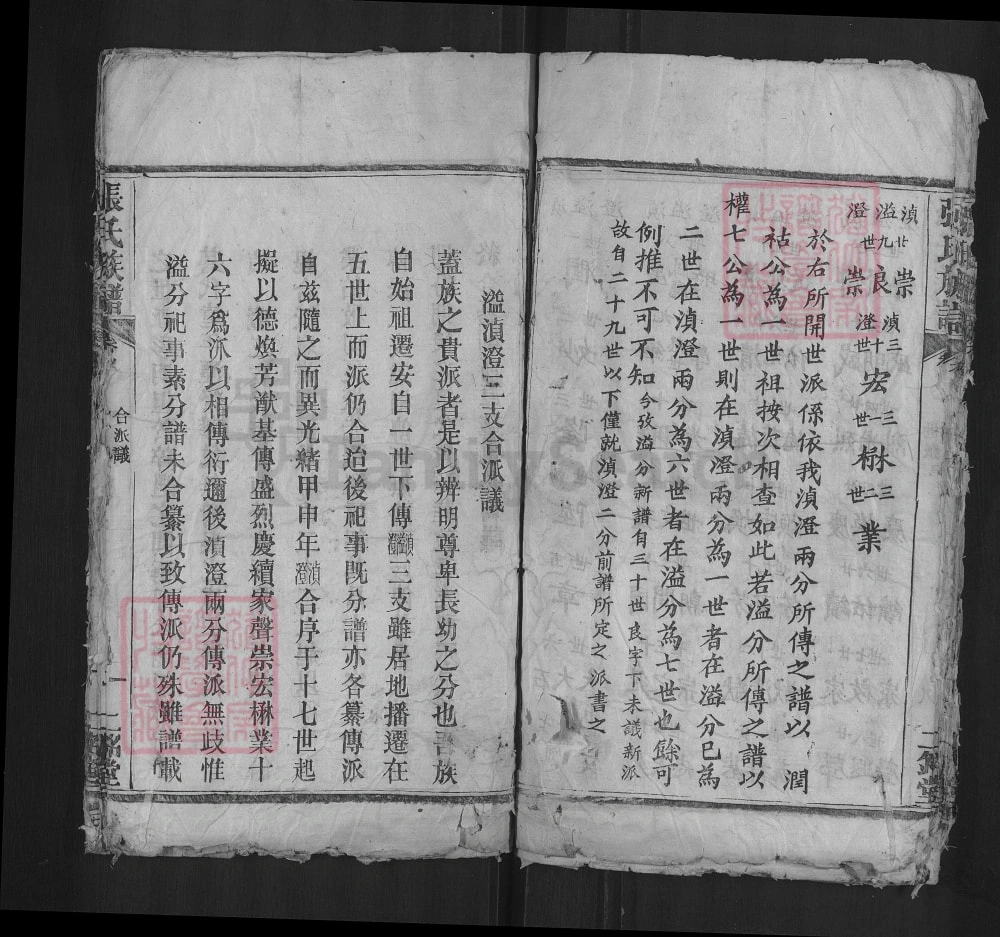 湞 廿 崇 湞 三 宏 三 楙 三 業
溢 九 良 十
澄 世 崇 澄 世 世 一 世 二
於右所開世派係依我湞澄兩分所傳之譜以 潤
祜公為一世祖按次相查如此若溢分所傳之譜以
權七公為一世則在湞澄兩分為一世者在溢分已為
二世在湞澄兩分為六世者在溢分為七世也餘可
例推不可不知今攷溢分新譜自三十世良字下未議新派
故自二十九世以下僅就湞澄二分前譜所定之派書之
溢湞澄三支合派議
蓋族之貴派者是以辨明尊卑長幼之分也吾族
自始祖遷安自一世下傳溢湞澄三支雖居地播遷在
五世上而派仍合迨後祀事既分譜亦各纂傳派
自茲隨之而異光緒甲申年湞澄合序于十七世起
擬以德煥芳猷基傳盛烈慶續家聲崇宏楙業十
六字為派以相傳衍邇後湞澄兩分傳派無歧惟
溢分祀事素分譜未合纂以致傳派仍殊雖譜載
張氏族譜
合派議
二銘堂
張氏族譜
二銘堂
FamilySearch